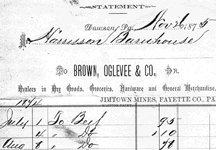 STATEMENT
Dawson Pa. Nov 26 1875
Harrison Barnhouse
To BROWN, OGLEVEE & CO., Dr.
Dealers in Dry Goods, Groceries, Hardware and General Merchandise.
JIMTOWN MINES, FAYETTE CO., PA.
July 1 To Beef 95
" 4 " Do 1 10
Aug 8 " Do